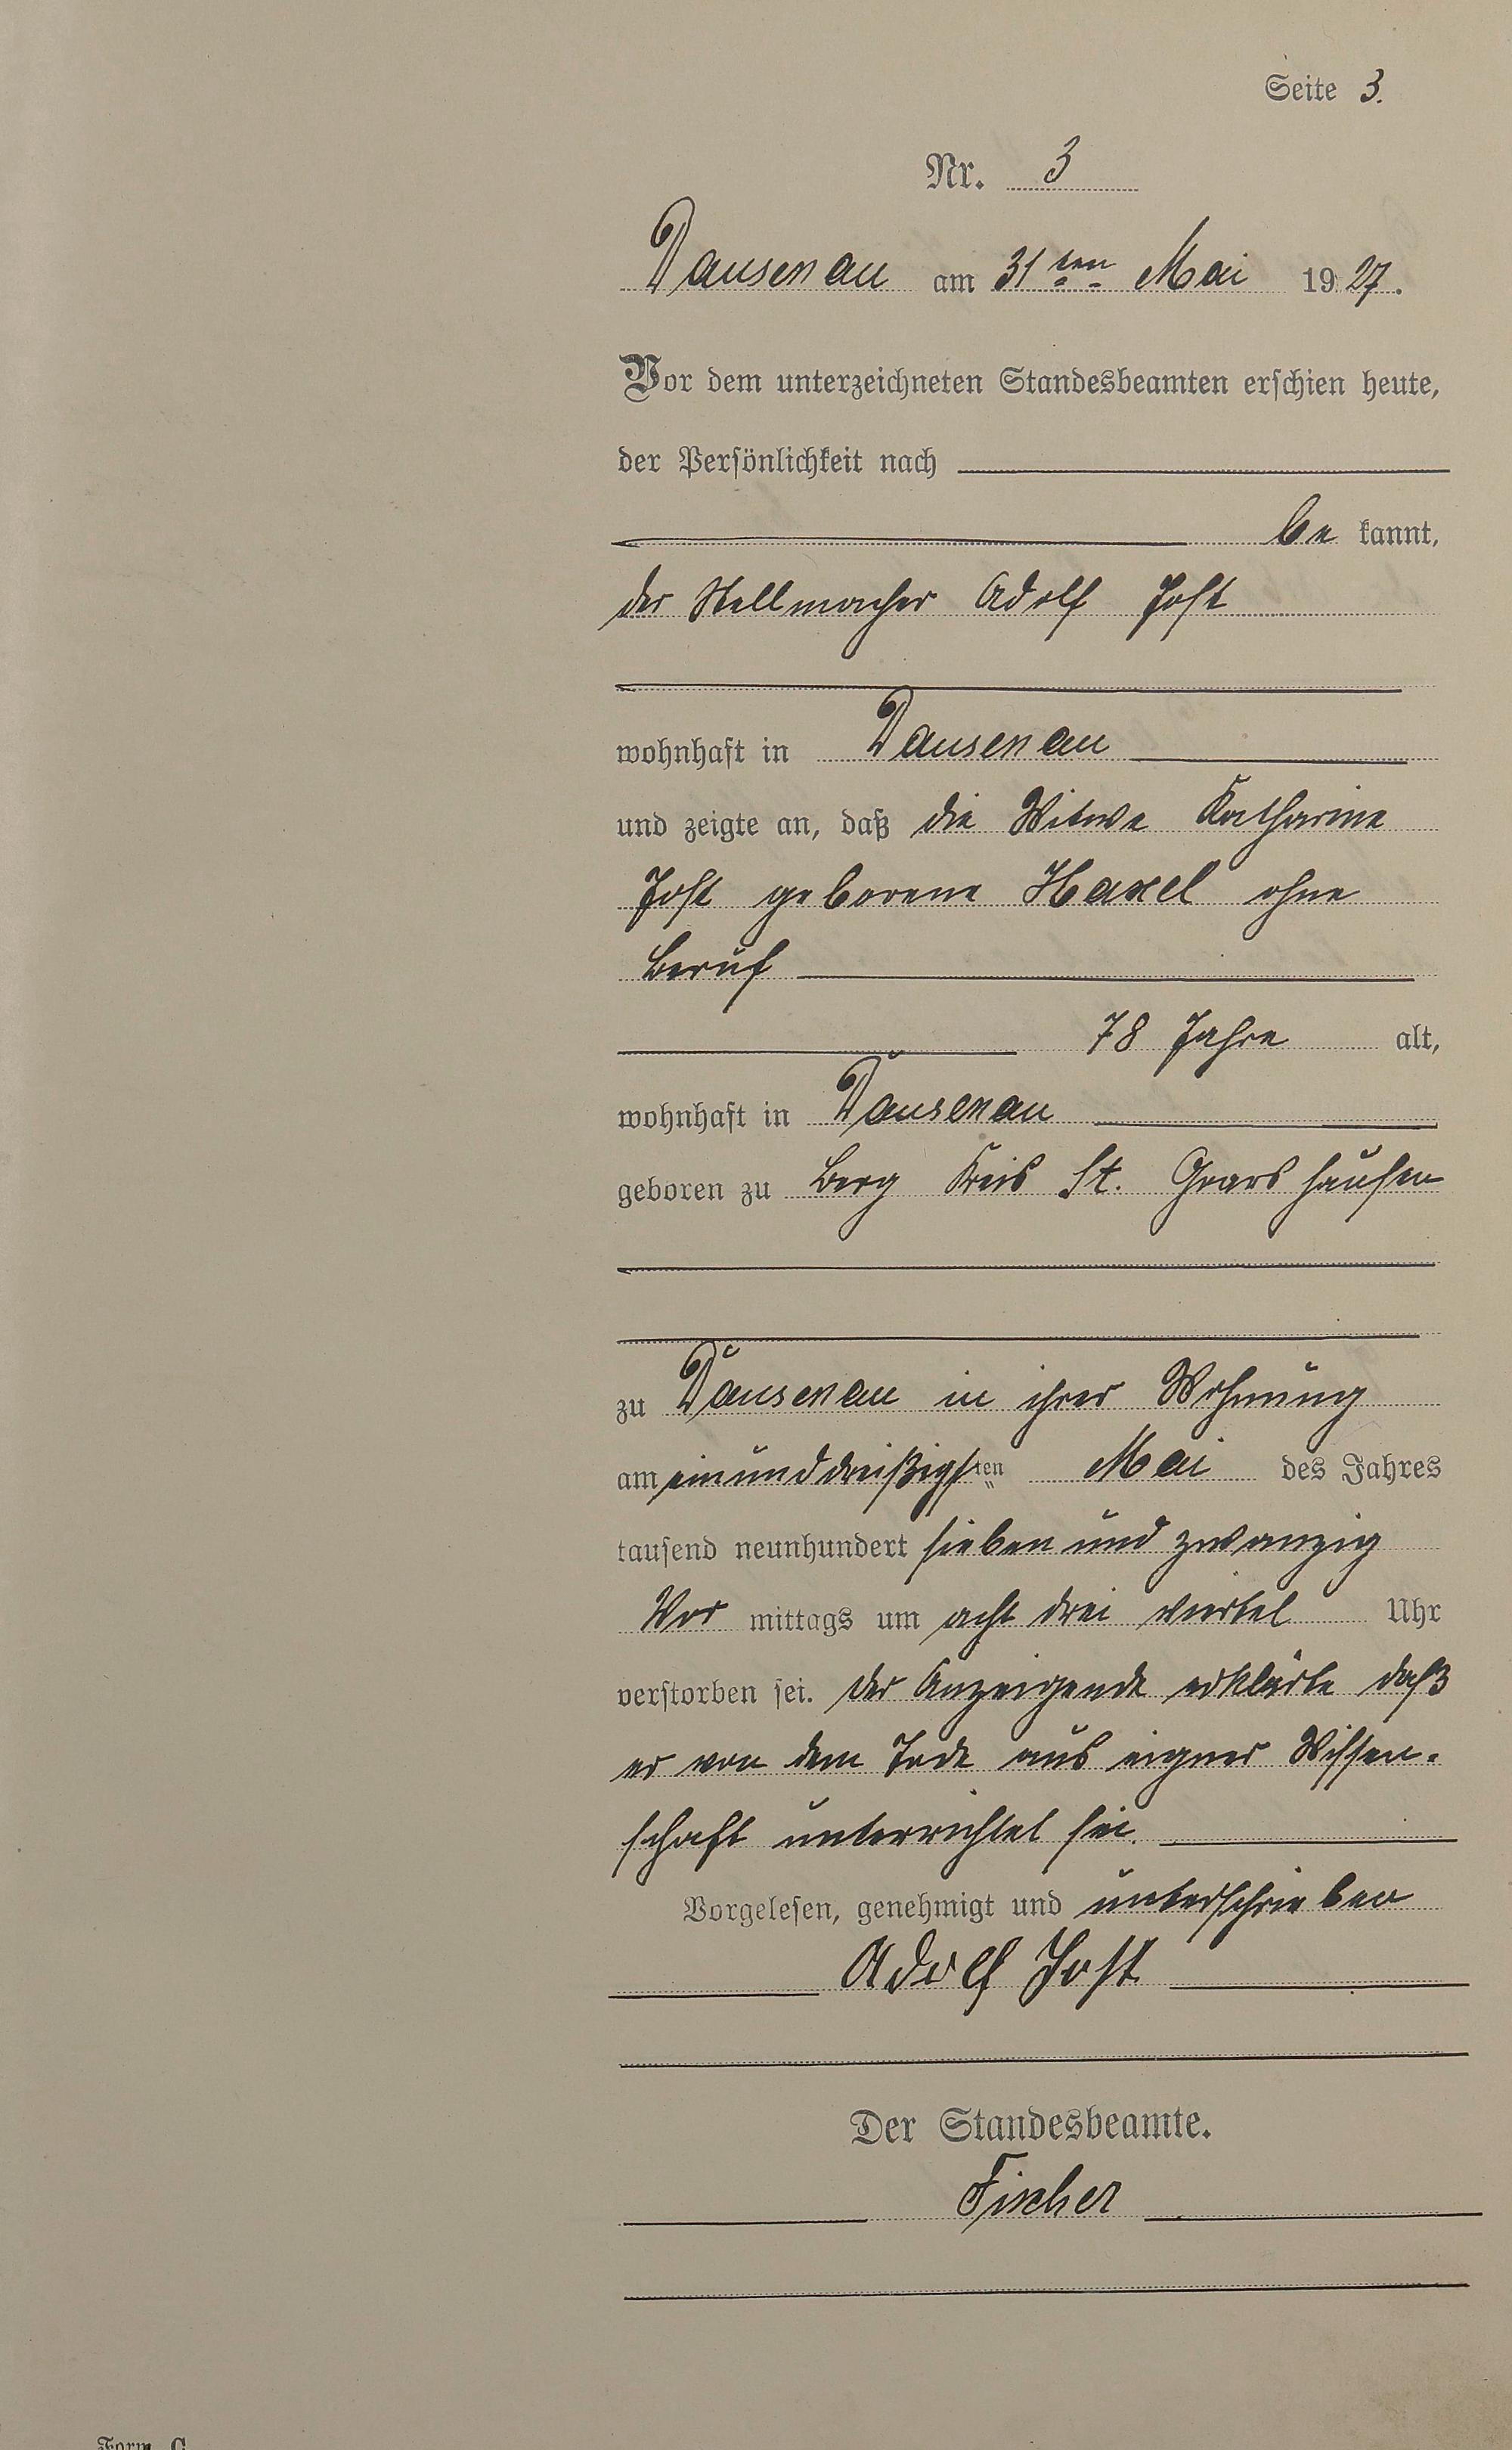 Seite 3.
Nr. 3
Dausenau am 31ten Mai 1927.
Vor dem unterzeichneten Standesbeamten erschien heute,
der Persönlichkeit nach
be kannt,
der Stellmacher Adolf Jost
wohnhaft in Dausenau
und zeigte an, daß die Witwe Katharine
Jost geborene Haxel ohne
Beruf
78 Jahre alt,
wohnhaft in Dausenau
geboren zu Berg Kreis St. Goarshausen
zu Dausenau in ihrer Wohnung
am einunddreißigsten Mai des Jahres
tausend neunhundert sieben und zwanzig
Vor mittags um acht drei viertel Uhr
verstorben sei. Der Anzeigende erklärte daß
er von dem Tode aus eigner Wissen-
schaft unterrichtet sei.
Vorgelesen, genehmigt und unterschrieben
Adolf Jost
Der Standesbeamte.
Fischer
Form. C